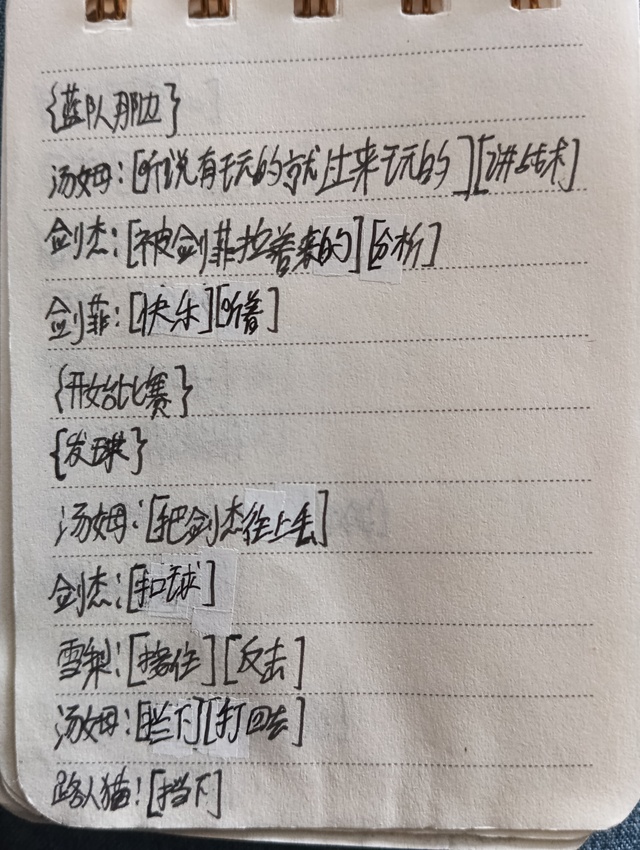 {蓝队那边}
汤姆:[听说有玩的就过来玩的][讲战术]
剑杰:[被剑菲拉着来的][分析]
剑菲:[快乐][听着]
{开始比赛}
{发球}
汤姆:[把剑杰往上丢]
剑杰:[扣球]
雪梨:[接住][反击]
汤姆:[拦下][打回去]
路人猫:[挡下]